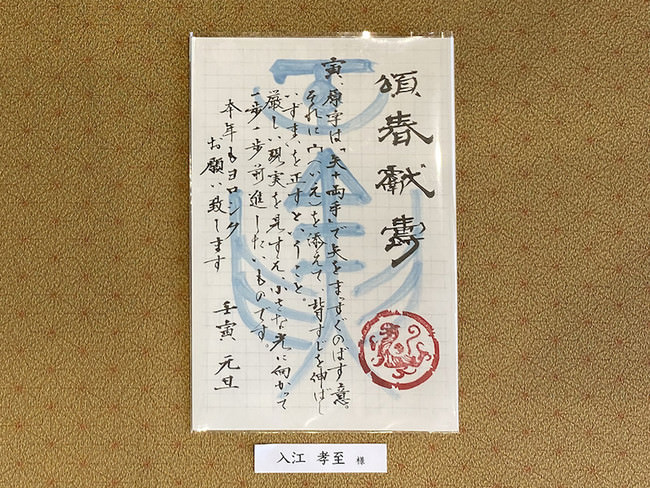 頌春献寿
寅、原字は「矢+両手」で矢をまっすぐのばす意。
それに宀(いえ)を添えて、背すじを伸ばし
いずまいを正すということ。
厳しい現実を見すえ、小さな光に向かって
一歩一歩前進したいものです
本年もヨロシク
お願い致します
壬寅 元旦
入江 孝至 様